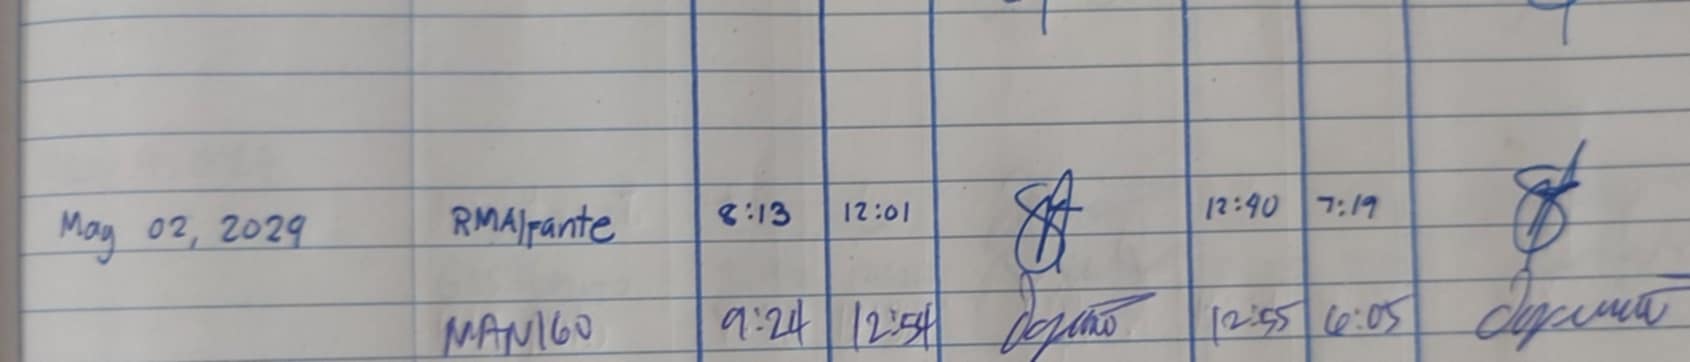 May 02, 2024 RMAlpante 8:13 12:01 12:40 7:19
MANIGO 9:24 12:54 12:55 6:05